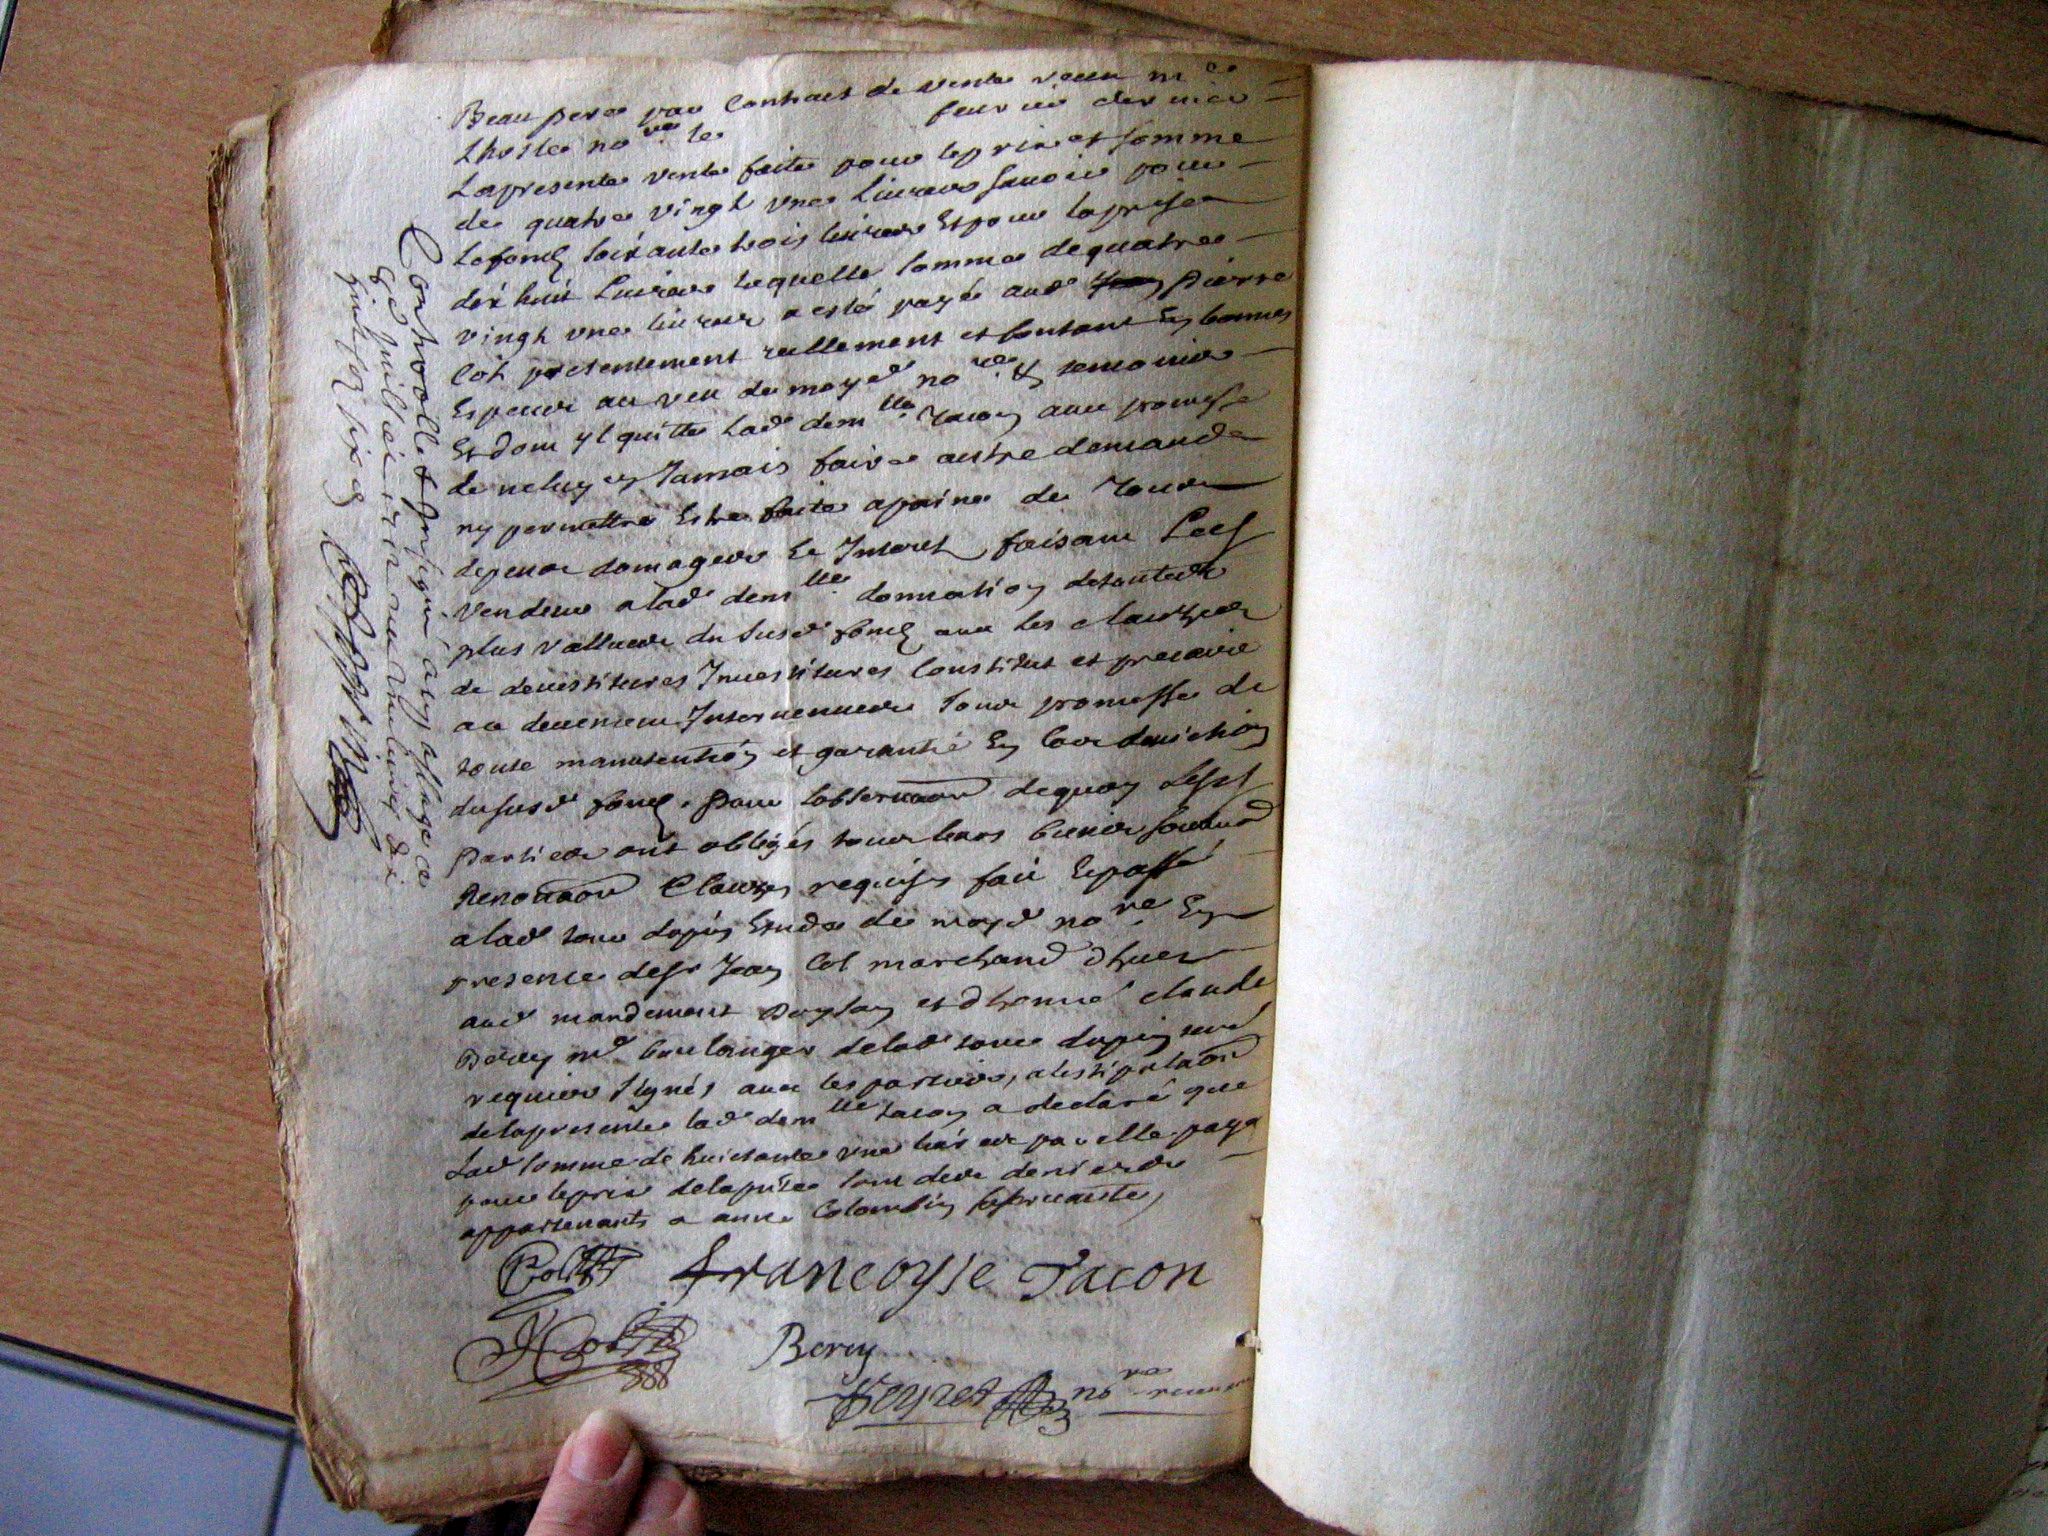 Beau pere par Contract de vente receu m.e
Lhoste no.re le feurier dernier
La presente vente faite pour le prix et somme
de quatre vingt vne Liures scauoir pour
le fond soixante trois liures Et pour la prise
dix huit Liures laquelle somme de quatre
vingt vne liures a esté payée aud Pierre
Col presentement reellement et contant En bonnes
Especes au veu de moyd no.re &
Et dont yl quitte lad dem.lle Tacon auec promesse
de ne luy en Jamais faire autre demande
ny permettre Estre faite a peine de tous
depens domages Et Interest faisant Led
Vendeur a lad dem.lle donnation de toutes
plus vallues du susd fond auec les clauzes
de deuestitures Inuestitures Constitut et precaire
a ce deuement Interuenues Sous promesse de
toute manutention et garantie En Cas deuiction
du susd fond. Pour lobseruaon de quoy Lesd
Parties ont obligés tous leurs biens soubmis
Renonaon Clauzes requises fait Et passé
a lad tour dupin Estude de moyd no.re En
presence de sr Jean Col marchand dhuez
aud mandement Doysan et dhonne Claude
Berey m.d boulanger de lad tour dupin tesm
requis signés auec les parties, a la stipulaon
de la presente lad dem.lle Tacon a declaré que
Lad somme de huictante vne liures par elle paya
pour le prix de la prise sont des deniers
appartenants a anne Colombin sa seruante,
Col francoyse Tacon
J Col Berey
no.re
Controollé & Insignué au long a
Ce Juillie